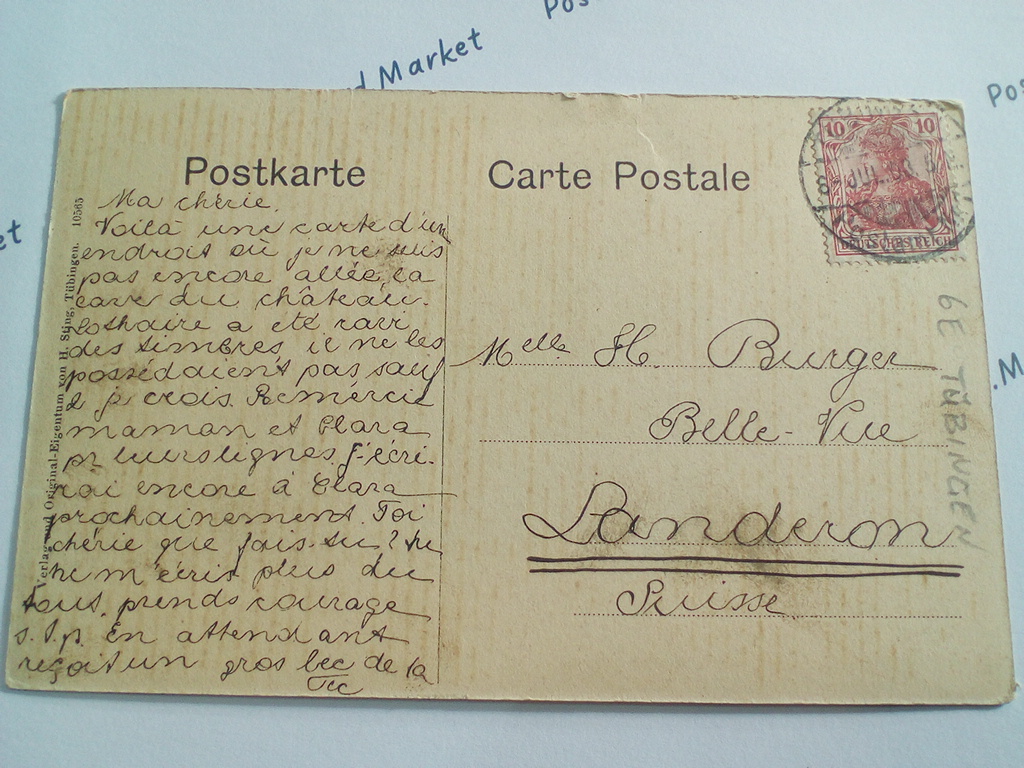 Pos
d Market
Pos
et
.M
Postkarte
Carte Postale
10 10
DEUTSCHES REICH
JUL.
Verlag und Original-Eigentum von H. Sting, Tübingen. 10565
Ma chérie,
Voilà une carte d'un
endroit où je ne suis
pas encore allée, la
cave du château.
Lothaire a été ravi
des timbres, il ne les
possédaient pas sauf
2 je crois. Remercie
maman et Clara
pr leurs lignes. J'écri-
rai encore à Clara
prochainement. Toi
chérie que fais-tu? tu
ne m'écris plus du
tout, prends courage
s. t. p. En attendant
reçoit un gros bec de ta
Melle H. Burger
Belle-Vue
Landeron
Suisse
6E TÜBINGEN